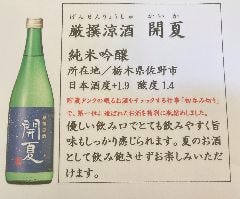 げんせんりょうしゅ かいか
厳撰涼酒 開夏
純米吟醸
所在地/栃木県佐野市
日本酒度+1.9 酸度 1.4
貯蔵タンクの眠るお酒をチェックする行事「初呑み切り」
で、第一位に選ばれたお酒を特別に瓶詰めしました。
優しい飲み口でとても飲みやすく旨
味もしっかり感じられます。夏のお酒
として飲み飽きせずお楽しみいただ
けます。
開夏